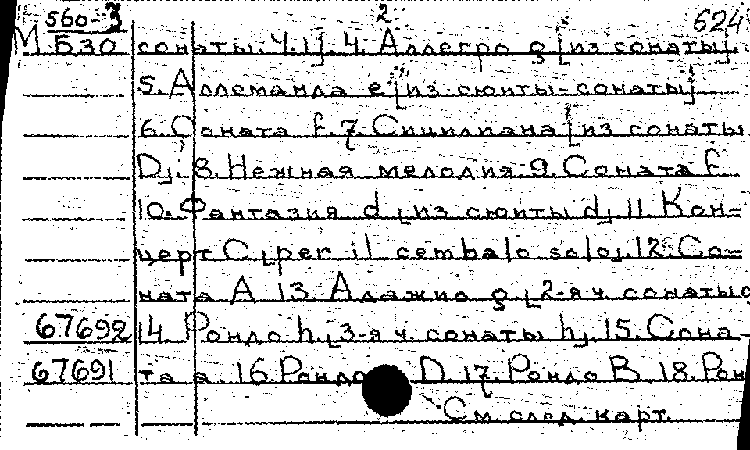 560-3 2 624
М 530 сонаты. Ч.1]. 4. Аллегро g [из сонаты].
5. Аллеманда e [из сюиты-сонаты]
6. Соната f. 7. Сицилиана [из сонаты
D]. 8. Нежная мелодия. 9. Соната f.
10. Фантазия d [из сюиты d]. 11. Кон=
церт C [per il cembalo solo]. 12. Со=
ната A 13. Адажио g [2-я ч. сонаты
67692 14. Рондо h [3-я ч. сонаты h]. 15. Сона-
67691 та a. 16. Рондо D. 17. Рондо B. 18. Рон
См. след. карт.